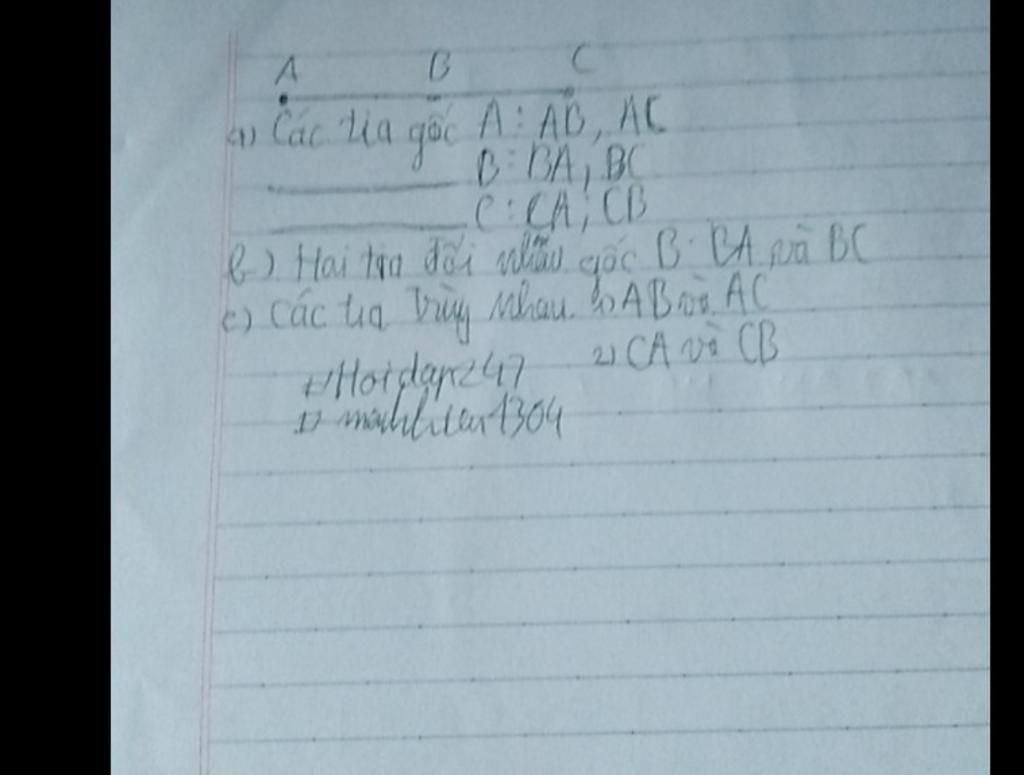 A B C
a) Các tia gốc A: AB, AC
B: BA, BC
C: CA; CB
b) Hai tia đối nhau gốc B: BA và BC
c) Các tia trùng nhau. 1) AB và AC
2) CA và CB
Hoidap247
1304